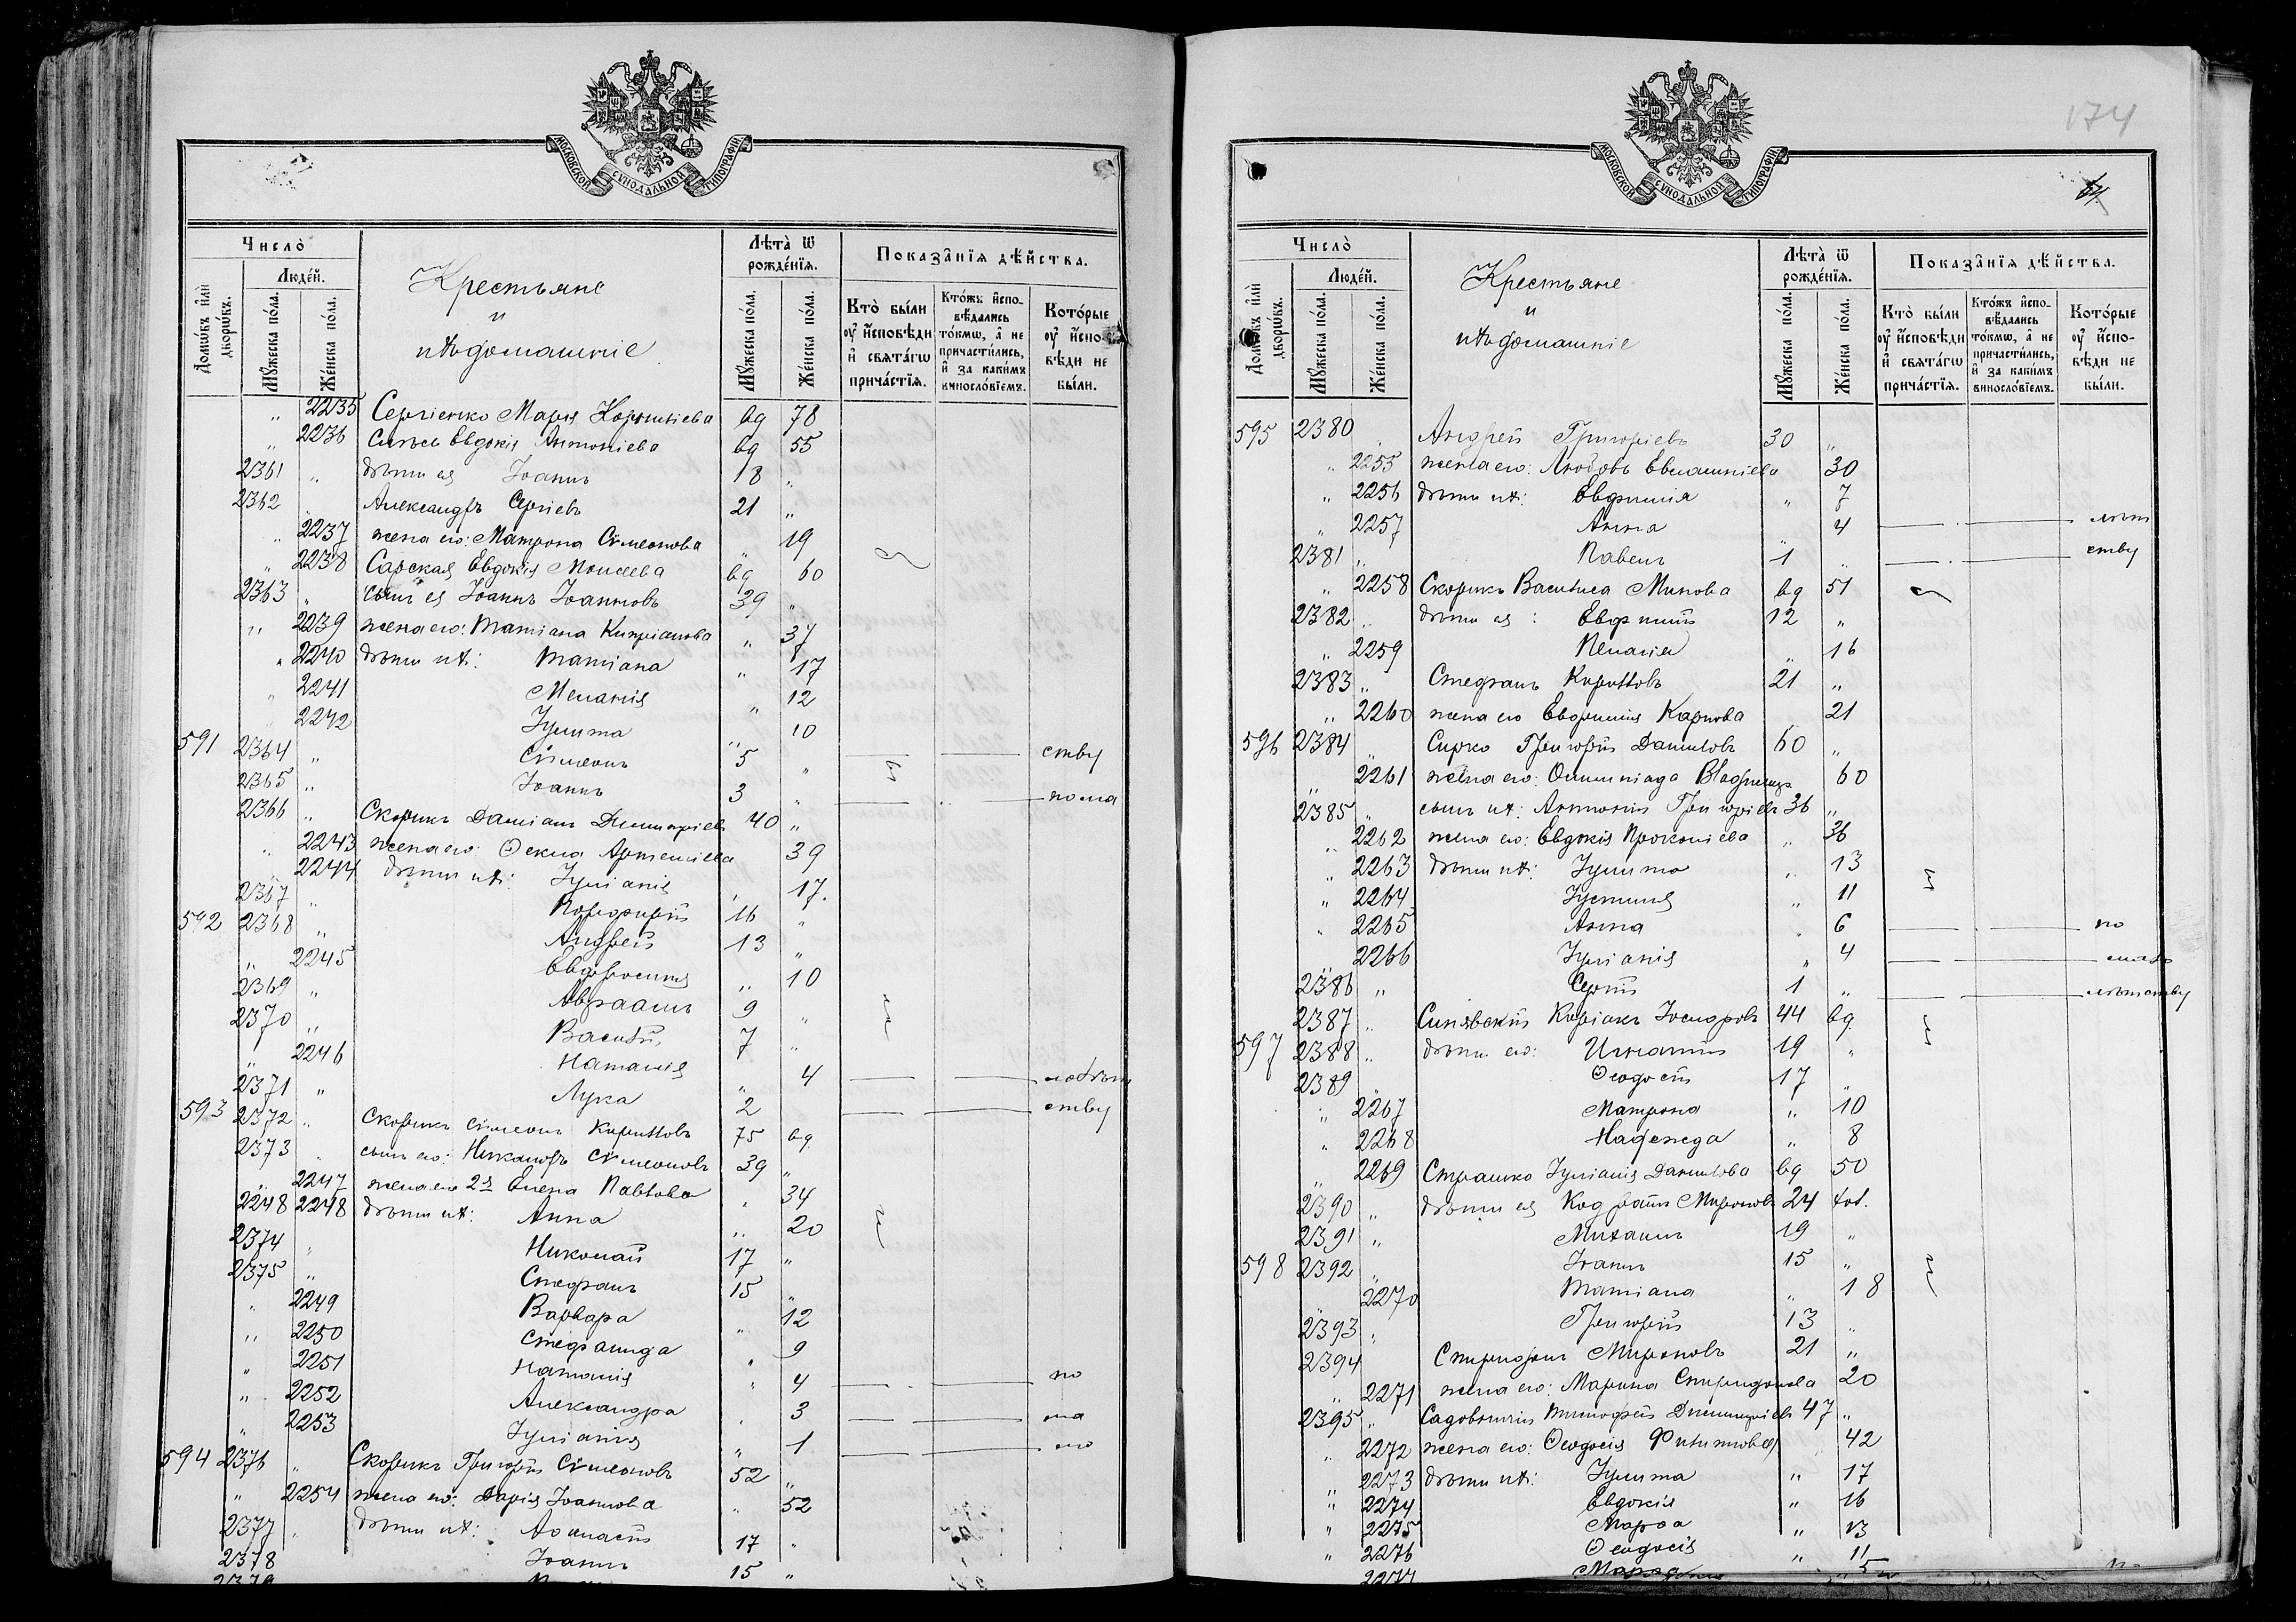 МОСКОВСКОЙ СѴНОДАЛЬНОЙ ТИПОГРАФІИ
Число̀
Люде́й.
Домѡ́въ и҆лѝ дворѡ́въ.
Мꙋ́жеска по́ла.
Же́нска по́ла.
Крестьяне
и
ихъ домашніе
Лѣта̀ ѿ рожде́нїѧ.
Мꙋ́жеска по́ла.
Же́нска по́ла.
Показа̑нїѧ дѣ́йства.
Кто̀ бы́ли ᲂу҆ и҆сповѣ́ди и҆ свѧта́гѡ прича́стїѧ.
Кто́жъ и҆спо-вѣ́дались то́кмѡ, а҆ не причасти́лись, и҆ за каки́мъ виносло́вїемъ.
Кото́рые ᲂу҆ и҆спо-вѣ́ди не бы́ли.
„ 2235 Сергіенко Марія Корниліева вд 78
„ 2236 Евдокія Антоніева вд 55
2361 „ дѣти ея Іоаннъ 18 „
2362 „ Александръ Сергіевъ 21 „
„ 2237 жена его: Матрона Сѵмеонова „ 19
„ 2238 Сарская Евдокія Моисеева вд 60
2363 „ сынъ ея Іоаннъ Іоанновъ 39 „
„ 2239 жена его: Татіана Кипріанова „ 37
„ 2240 дѣти ихъ: Татіана „ 17
„ 2241 Меланія „ 12
„ 2242 Іулита „ 10
591 2364 „ Сѵмеонъ 5 „ ству
2365 „ Іоаннъ 3 „ по ма
2366 „ Скорикъ Даміанъ Димитріевъ 40 „
„ 2243 жена его: Ѳекла Артеміева „ 39
2244 дѣти ихъ: Іуліанія „ 17.
2367 „ Порфирій 16 „
592 2368 „ Андрей 13 „
„ 2245 Евфросинія „ 10
2369 „ Авраамъ 9 „
2370 „ Василій 7 „
„ 2246 Наталія „ 4
2371 „ Лука 2 ству
593 2372 „ Скорикъ Сѵмеонъ Кирилловъ 75 вд.
2373 „ сынъ его: Никаноръ Сѵмеоновъ 39 „
„ 2247 жена его 2я Елена Павлова „ 34
2248 2248 дѣти ихъ: Анна „ 20
2374 „ Николай 17 „
2375 „ Стефанъ 15 „
„ 2249 Варвара „ 12
„ 2250 Стефанида „ 9
„ 2251 Наталія „ 4 по
„ 2252 Александра „ 3 ма
„ 2253 Іуліанія „ 1 ло
594 2376 „ Скорикъ Григорій Сѵмеоновъ 52 „
„ 2254 жена его: Дарія Іоаннова „ 52
2377 „ дѣти ихъ: Аѳанасій 17 „
2378 Іоаннъ 15 „
2379
174
МОСКОВСКОЙ СѴНОДАЛЬНОЙ ТИПОГРАФІИ
Число̀
Люде́й.
Домѡ́въ и҆лѝ дворѡ́въ.
Мꙋ́жеска по́ла.
Же́нска по́ла.
Крестьяне
и
ихъ домашніе
Лѣта̀ ѿ рожде́нїѧ.
Мꙋ́жеска по́ла.
Же́нска по́ла.
Показа̑нїѧ дѣ́йства.
Кто̀ бы́ли ᲂу҆ и҆сповѣ́ди и҆ свѧта́гѡ прича́стїѧ.
Кто́жъ и҆спо-вѣ́дались то́кмѡ, а҆ не причасти́лись, и҆ за каки́мъ виносло́вїемъ.
Кото́рые ᲂу҆ и҆спо-вѣ́ди не бы́ли.
595 2380 „ Андрей Григоріевъ 30 „
„ 2255 жена его: Любовь Евлампіева 30
„ 2256 дѣти ихъ: Евфимія „ 7
„ 2257 Анна „ 4 лѣт
2381 „ Павелъ 1 „ ству
„ 2258 Скорикъ Василиса Минова вд 51
2382 „ дѣти ея: Евфимій 12 „
„ 2259 Пелагія „ 16
2383 „ Стефанъ Кирилловъ 21 „
„ 2260 жена его Евфимія Карпова 21
596 2384 „ Сирко Григорій Даниловъ 60 „
„ 2261 жена его: Олимпіада 60
2385 „ сынъ ихъ: Антоній Григоріевъ 36 „
„ 2262 жена его: Евдокія Прокопіева „ 36
„ 2263 дѣти ихъ: Іулита „ 13
„ 2264 Іустинія „ 11
„ 2265 Анна „ 6 по
„ 2266 Іуліанія „ 4 мало
2386 „ Сергій 1 „ лѣтству
2387 „ Синявскій Киріакъ Іосифовъ 44 вд.
597 2388 „ дѣти его: Игнатій 19 „
2389 „ Ѳеодосій 17 „
„ 2267 Матрона „ 10
„ 2268 Надежда „ 8
„ 2269 Страшко Іуліанія Данилова вд 50
2390 „ дѣти ея Кодратъ Мироновъ 24 хол.
2391 „ Михаилъ 19 „
598 2392 „ Іоаннъ 15 „
„ 2270 Татіана „ 18
2393 „ Григорій 13 „
2394 Спиридонъ Мироновъ 21 „
„ 2271 жена его: Марина Спиридонова 20
2395 „ Садовничій Тимофей Димитріевъ 47 „
„ 2272 жена его: Ѳеодосія Филиппова 42
„ 2273 дѣти ихъ: Іулита „ 17
„ 2274 Евдокія „ 16
„ 2275 Марѳа „ 13
„ 2276 Ѳеодосія „ 11
2277 Марія 5